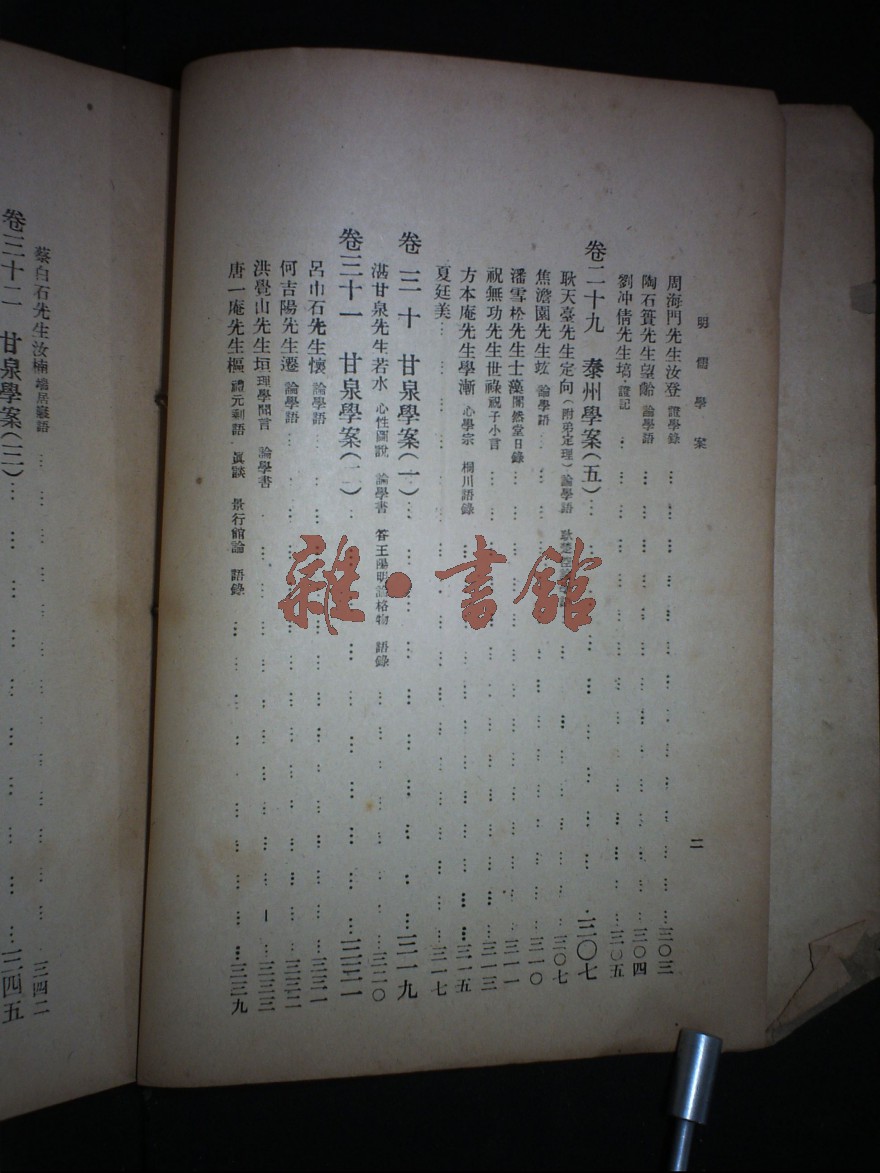 明儒學案
二
周海門先生汝登 證學錄 … 三〇三
陶石簣先生望齡 論學語 … 三〇四
劉冲倩先生塙 證記 … 三〇五
卷二十九 泰州學案(五) … 三〇七
耿天臺先生定向(附弟定理)論學語 … 三〇七
焦澹園先生竑 論學語 … 三一〇
潘雪松先生士藻 闇然堂日錄 … 三一一
祝無功先生世祿 祝子小言 … 三一三
方本庵先生學漸 心學宗 桐川語錄 … 三一五
夏廷美 … 三一七
卷三十 甘泉學案(一) … 三一九
湛甘泉先生若水 心性圖說 論學書 答王陽明論格物 語錄 … 三二〇
卷三十一 甘泉學案(二) … 三三一
呂巾石先生懷 論學語 … 三三一
何吉陽先生遷 論學語 … 三三二
洪覺山先生垣 理學聞言 論學書 … 三三三
唐一庵先生樞 禮元剩語 眞談 景行館論 語錄 … 三三九
蔡白石先生汝楠 端居寱語 … 三四二
卷三十二 甘泉學案(三) … 三四五
雜·書館